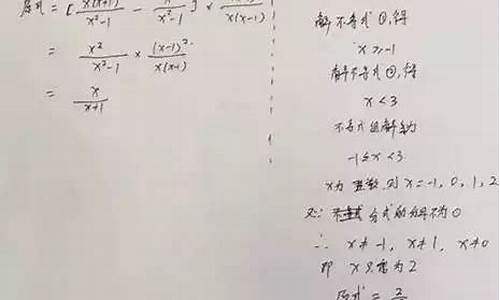 原式 = [ x(x+1) / x²-1 - x / x²-1 ] ×
= x² / x²-1 × (x-1)² / x(x-1)
= x / x+1
解不等式①,得
x ≥ -1
解不等式②,得
x < 3
不等式组解为
-1 ≤ x < 3
x为整数,则 x = -1, 0, 1, 2
又∵ 分式的分母不为0
∴ x ≠ -1, x ≠ 1, x ≠ 0
即 x只需为2
原式 = 2